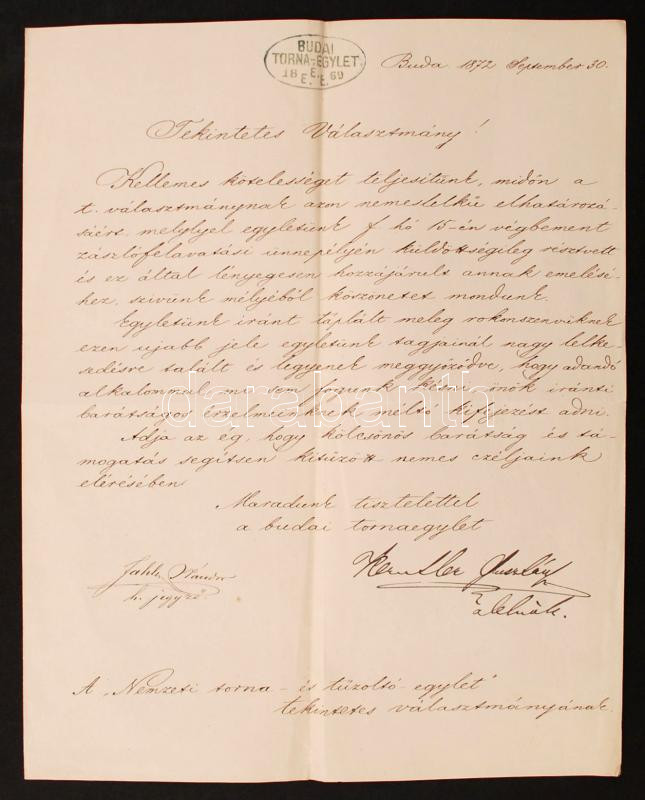 BUDAI
TORNA-EGYLET.
18 E. 69
E. E.
Buda 1872 September 30.
Tekintetes Választmány!
Kellemes kötelességet teljesitünk, midőn a
t. választmánynak azon nemeslelkü elhatározá-
sáért melylyel egyletünk f. hó 15-én végbement
zászlófelavatási ünnepélyén küldöttségileg résztvett
és ez által lényegesen hozzájárult annak emelésé-
hez, szivünk mélyéből köszönetet mondunk.
Egyletünk iránt táplált meleg rokonszenvüknek
ezen ujabb jele egyletünk tagjainál nagy lelke-
sedésre talált és legyenek meggyőződve, hogy adandó
alkalommal mi sem fogunk késni önök iránti
barátságos érzelmünknek méltó kifejezést adni.
Adja az ég, hogy kölcsönös barátság és tá-
mogatás segitsen kitüzött nemes czéljaink
elérésében
Maradunk tisztelettel
a budai tornaegylet
Nándor
h. jegyző
Gusztáv
alelnök.
A „Nemzeti torna- és tüzoltó-egylet"
tekintetes választmányának.
darabanth